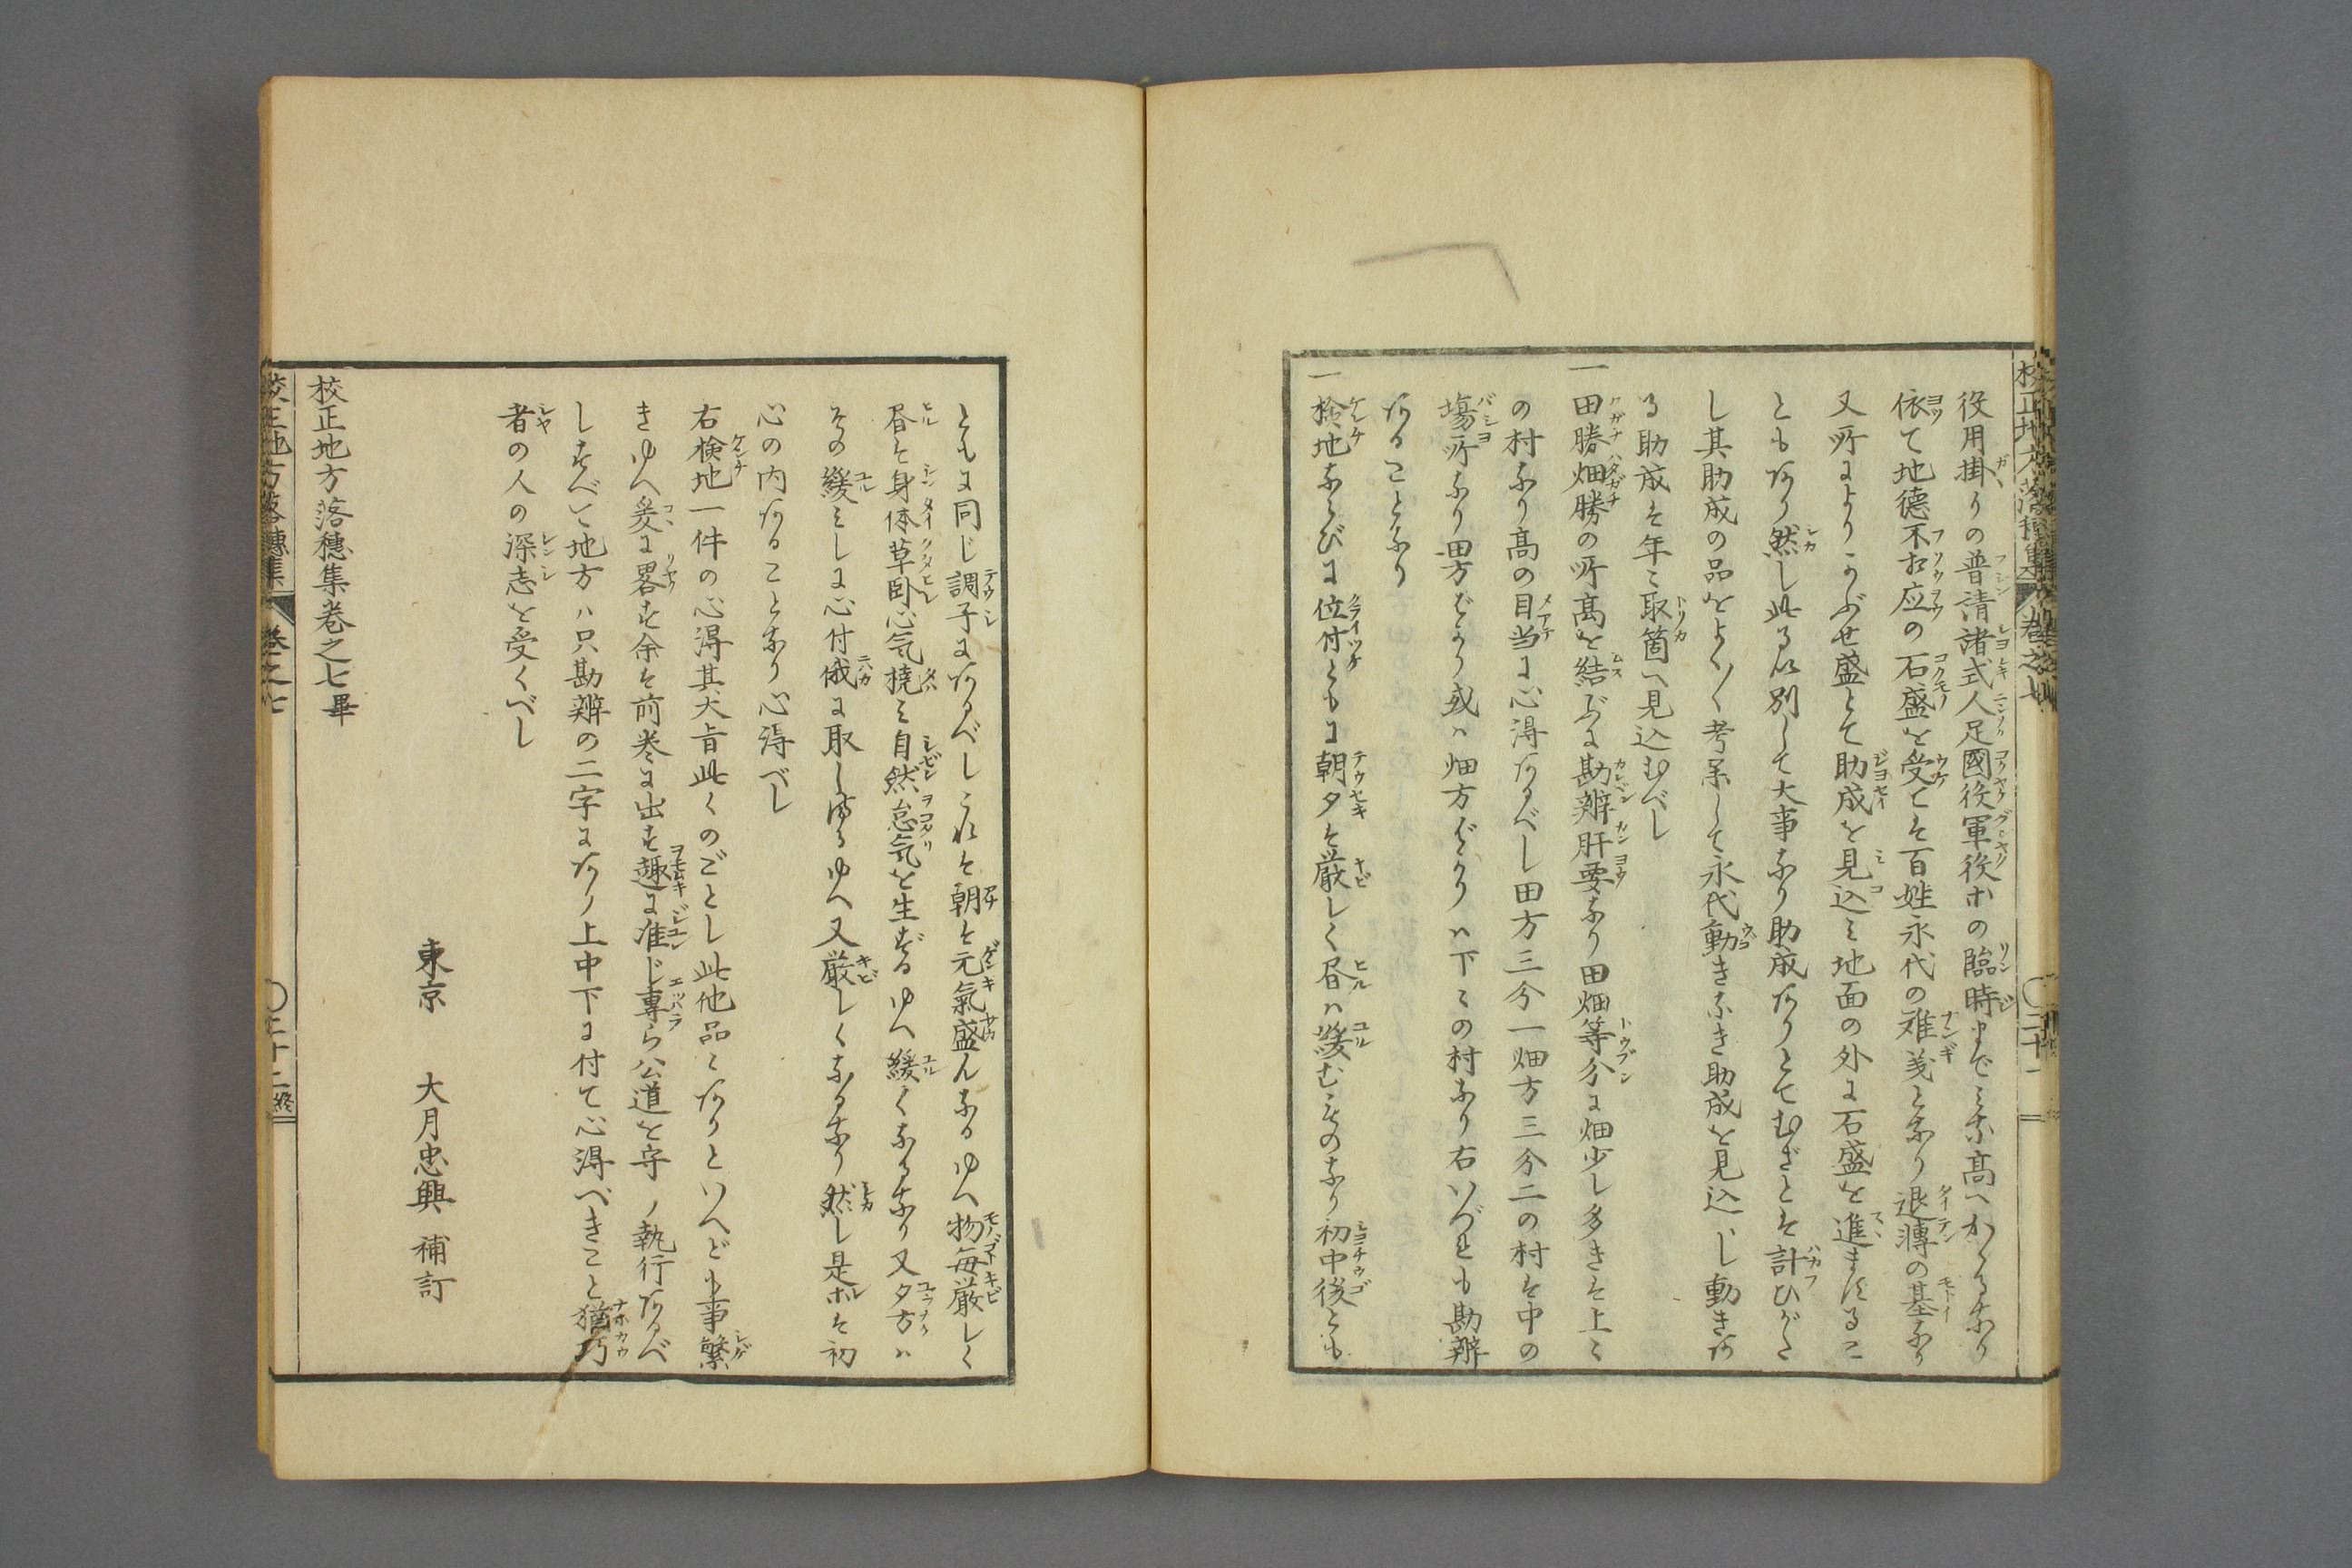 役用掛りの普請諸式人足國役軍役ホの臨時までミな高へかゝるなり
依て地德不相应の石盛を受てハ百姓永代の难義となり退轉の基なり
又所によりかぶせ盛とて助成を見込ミ地面の外に石盛を進まするこ
ともあり然し此る以別して大事なり助成ありとてむざとハ計ひがた
し其助成の品をよく〱考量して永代動きなき助成を見込べし動きあ
る助成ハ年々取箇へ見込むべし
一田勝畑勝の所高を結ぶに勘辨肝要なり田畑等分に畑少し多きハ上々
の村なり高の目当に心得あるべし田方三分一畑方三分二の村ハ中の
塲所なり田方ばかり或ハ畑方ばかりハ下々の村なり右いづれも勘辨
あることなり
一検地ならびに位付ともに朝夕ハ厳しく昼ハ緩むものなり初中後とも
ともに同じ調子にあるべしこれハ朝ハ元氣盛んなるゆへ物毎厳しく
昼ハ身体草卧心気撓ミ自然怠気を生ずるゆへ緩くなるなり又夕方ハ
その緩ミしに心付俄に取しまるゆへ又厳しくなるなり然し是ホハ初
心の内あることなり心得べし
右検地一件の心得其大旨此くのごとし此他品々ありといへども事繁
きゆへ爰に畧す余ハ前巻に出す趣に准じ専ら公道を守り執行あるべ
しすべて地方ハ只勘辨の二字にあり上中下に付て心得べきこと猶巧
者の人の深志を受くべし
東京　大月忠興　補訂
校正地方落穗集巻之七畢
校正地方落穗集　巻之七　〇二十一
校正地方落穗集　巻之七　〇二十二終